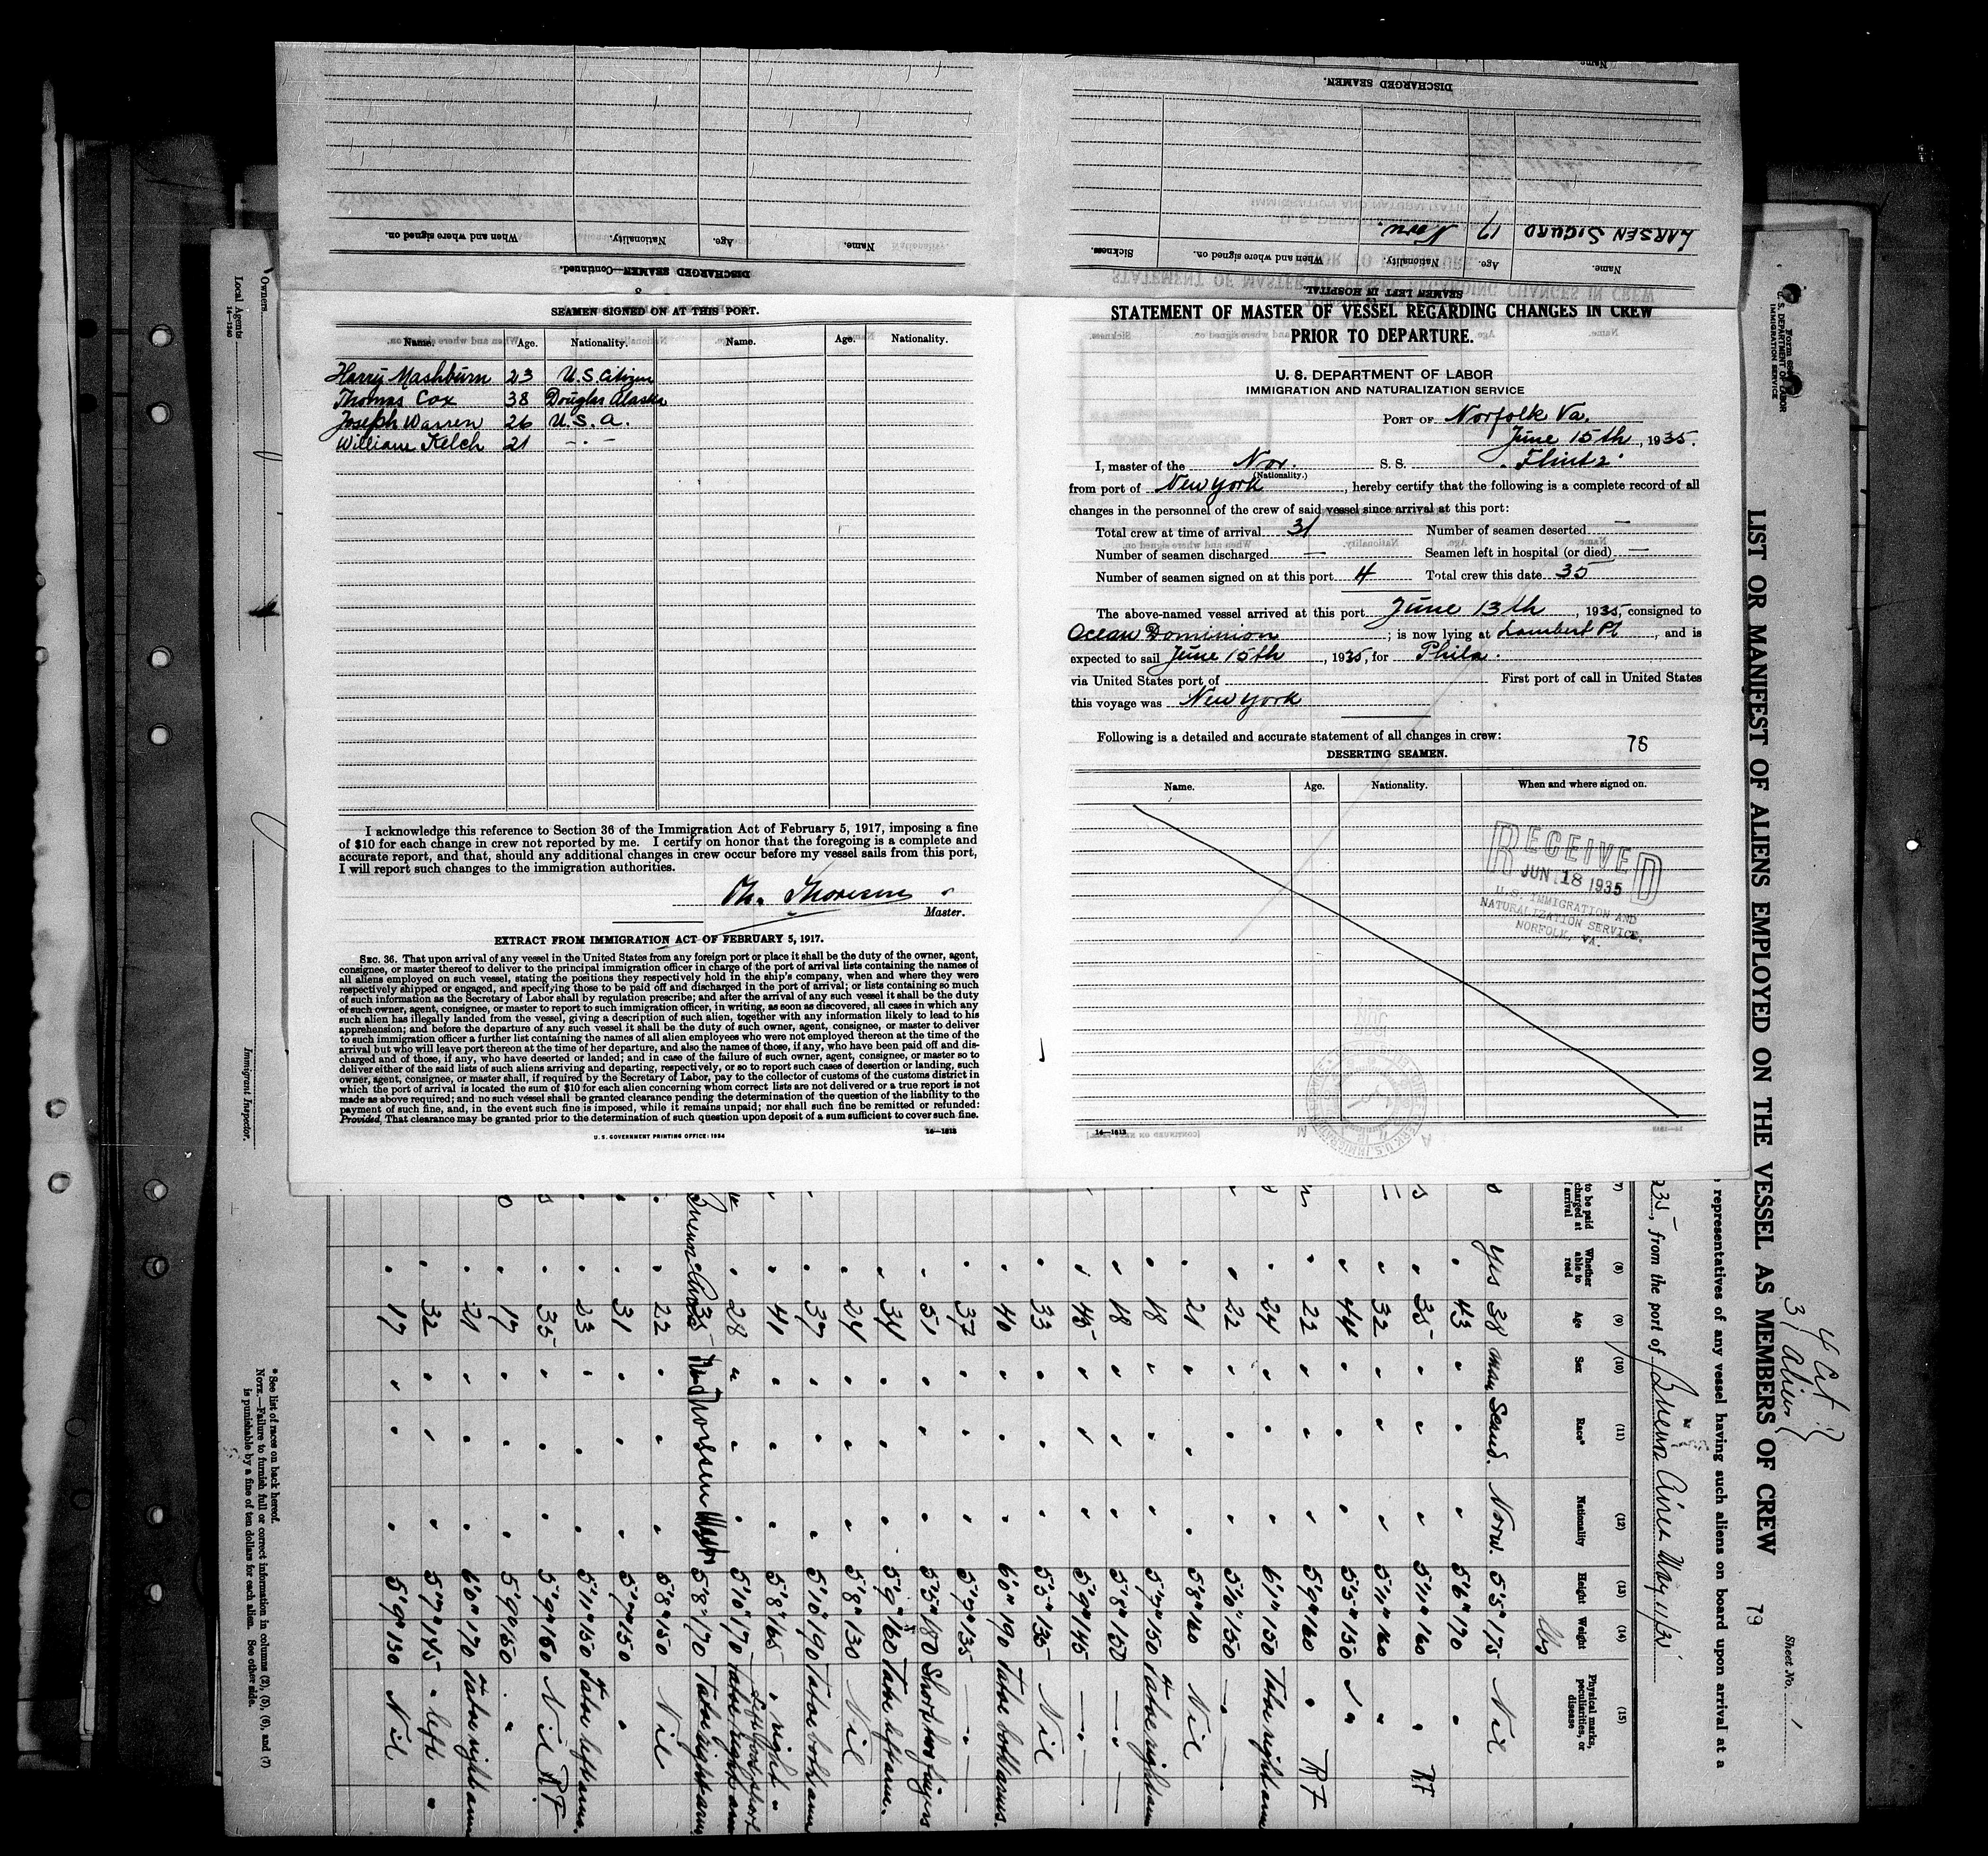 DISCHARGED SEAMEN.
LARSEN SIGURD 17 Norw.
Name. Age. Nationality. When and where signed on. Sickness
SEAMEN LEFT IN HOSPITAL
Name. Age. Nationality. When and where signed on.
DISCHARGED SEAMEN—Continued.
SEAMEN SIGNED ON AT THIS PORT.
Name. Age. Nationality. Name. Age. Nationality.
Harry Mashburn 23 U.S. Citizen
Thomas Cox 38 Douglas Alaska
Joseph Warren 26 U.S.A.
William Kelch 21 — · —
I acknowledge this reference to Section 36 of the Immigration Act of February 5, 1917, imposing a fine
of $10 for each change in crew not reported by me. I certify on honor that the foregoing is a complete and
accurate report, and that, should any additional changes in crew occur before my vessel sails from this port,
I will report such changes to the immigration authorities.
Th. Thoresen
Master.
EXTRACT FROM IMMIGRATION ACT OF FEBRUARY 5, 1917.
SEC. 36. That upon arrival of any vessel in the United States from any foreign port or place it shall be the duty of the owner, agent,
consignee, or master thereof to deliver to the principal immigration officer in charge of the port of arrival lists containing the names of
all aliens employed on such vessel, stating the positions they respectively hold in the ship's company, when and where they were
respectively shipped or engaged, and specifying those to be paid off and discharged in the port of arrival; or lists containing so much
of such information as the Secretary of Labor shall by regulation prescribe; and after the arrival of any such vessel it shall be the duty
of such owner, agent, consignee, or master to report to such immigration officer, in writing, as soon as discovered, all cases in which any
such alien has illegally landed from the vessel, giving a description of such alien, together with any information likely to lead to his
apprehension; and before the departure of any such vessel it shall be the duty of such owner, agent, consignee, or master to deliver
to such immigration officer a further list containing the names of all alien employees who were not employed thereon at the time of the
arrival but who will leave port thereon at the time of her departure, and also the names of those, if any, who have been paid off and dis-
charged and of those, if any, who have deserted or landed; and in case of the failure of such owner, agent, consignee, or master so to
deliver either of the said lists of such aliens arriving and departing, respectively, or so to report such cases of desertion or landing, such
owner, agent, consignee, or master shall, if required by the Secretary of Labor, pay to the collector of customs of the customs district in
which the port of arrival is located the sum of $10 for each alien concerning whom correct lists are not delivered or a true report is not
made as above required; and no such vessel shall be granted clearance pending the determination of the question of the liability to the
payment of such fine, and, in the event such fine is imposed, while it remains unpaid; nor shall such fine be remitted or refunded:
Provided, That clearance may be granted prior to the determination of such question upon deposit of a sum sufficient to cover such fine.
U. S. GOVERNMENT PRINTING OFFICE: 1934 14—1613
STATEMENT OF MASTER OF VESSEL REGARDING CHANGES IN CREW
PRIOR TO DEPARTURE.
U. S. DEPARTMENT OF LABOR
IMMIGRATION AND NATURALIZATION SERVICE
PORT OF Norfolk Va.
June 15th, 1935.
I, master of the Nor. S. S. "Flint 2"
(Nationality.)
from port of New York, hereby certify that the following is a complete record of all
changes in the personnel of the crew of said vessel since arrival at this port:
Total crew at time of arrival 31 Number of seamen deserted —
Number of seamen discharged — Seamen left in hospital (or died) —
Number of seamen signed on at this port 4 Total crew this date 35
The above-named vessel arrived at this port June 13th, 1935, consigned to
Ocean Dominion; is now lying at Lambert Pt, and is
expected to sail June 15th, 1935, for Phila.
via United States port of First port of call in United States
this voyage was New York
Following is a detailed and accurate statement of all changes in crew:
78
DESERTING SEAMEN.
Name. Age. Nationality. When and where signed on.
RECEIVED
JUN 18 1935
U.S. IMMIGRATION AND
NATURALIZATION SERVICE,
NORFOLK, VA.
14—1613
U. S. DEPARTMENT OF LABOR
IMMIGRATION SERVICE
4 Cit
31 aliens
Sheet No. 1
LIST OR MANIFEST OF ALIENS EMPLOYED ON THE VESSEL AS MEMBERS OF CREW
79
representatives of any vessel having such aliens on board upon arrival at a
from the port of Buenos Aires May 11/35
(7) (8) (9) (10) (11) (12) (13) (14) (15)
Whether able to read Age Sex Race* Nationality Height Weight Physical marks, peculiarities, or disease
lbs
yes 38 man Scand. Norw. 5'5" 175 Nil
43 " " " 5'6" 170 "
35 " " " 5'11" 160 " RF
32 " " " 5'11" 160 "
44 " " " 5'5" 150 "
22 " " " 5'9" 160 " RF
24 " " " 6'1" 150 Tatoe right arm
22 " " " 5'10" 150 —"—
21 " " " 5'8" 160 Nil
18 " " " 5'7" 150 Tatoe right arm
18 " " " 5'8" 150 —"—
45 " " " 5'9" 145 —"—
33 " " " 5'5" 135 Nil
40 " " " 6'0" 190 Tatoe both arms.
37 " " " 5'7" 135 —"—
51 " " " 5'5" 180 Short two fingers
34 " " " 5'9" 160 Tatoe left arm.
24 " " " 5'8" 130 Nil
37 " " " 5'10" 190 Tatoe both arm
41 " " " 5'8" 165 " right "
28 " " " 5'10" 170 Tatoe right arm
35 5'8" 170 Tatoe right arm
22 " " " 5'8" 150 Nil
31 " " " 5'9" 150 "
23 " " " 5'11" 150 Tatoe left arm.
35 " " " 5'9" 160 Nil RF
17 " " " 5'9" 150 "
21 " " " 6'0" 170 Tatoe right arm
32 " " " 5'7" 145 " left "
17 " " " 5'9" 130 Nil
* See list of races on back hereof.
NOTE.—Failure to furnish full or correct information in columns (2), (5), (6), and (7)
is punishable by a fine of ten dollars for each alien. See other side.
Owners
Local Agents
14—1240
Immigrant Inspector.